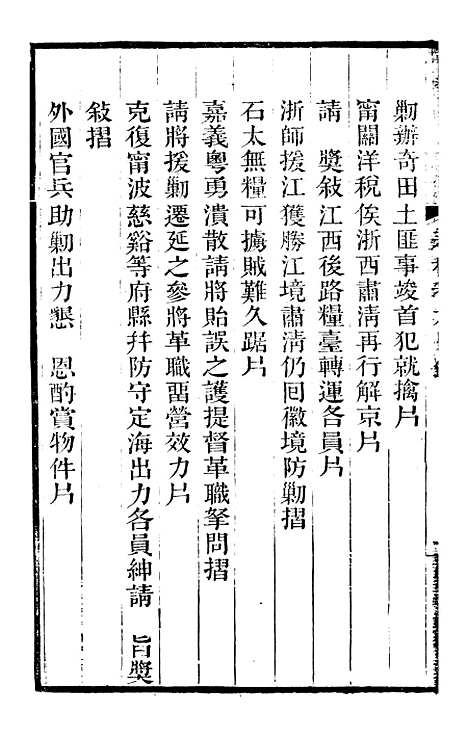 勦辦奇田土匪事竣首犯就擒片
甯關洋稅俟浙西肅淸再行解京片
請　獎敍江西後路糧臺轉運各員片
浙師援江獲勝江境肅淸仍囘徽境防勦摺
石太無糧可擄賊難久踞片
嘉義粤勇潰散請將貽誤之護提督革職拏問摺
請將援勦遷延之參將革職畱營效力片
克復甯波慈谿等府縣幷防守定海出力各員紳請　旨獎
敍摺
外國官兵助勦出力懇　恩酌賞物件片